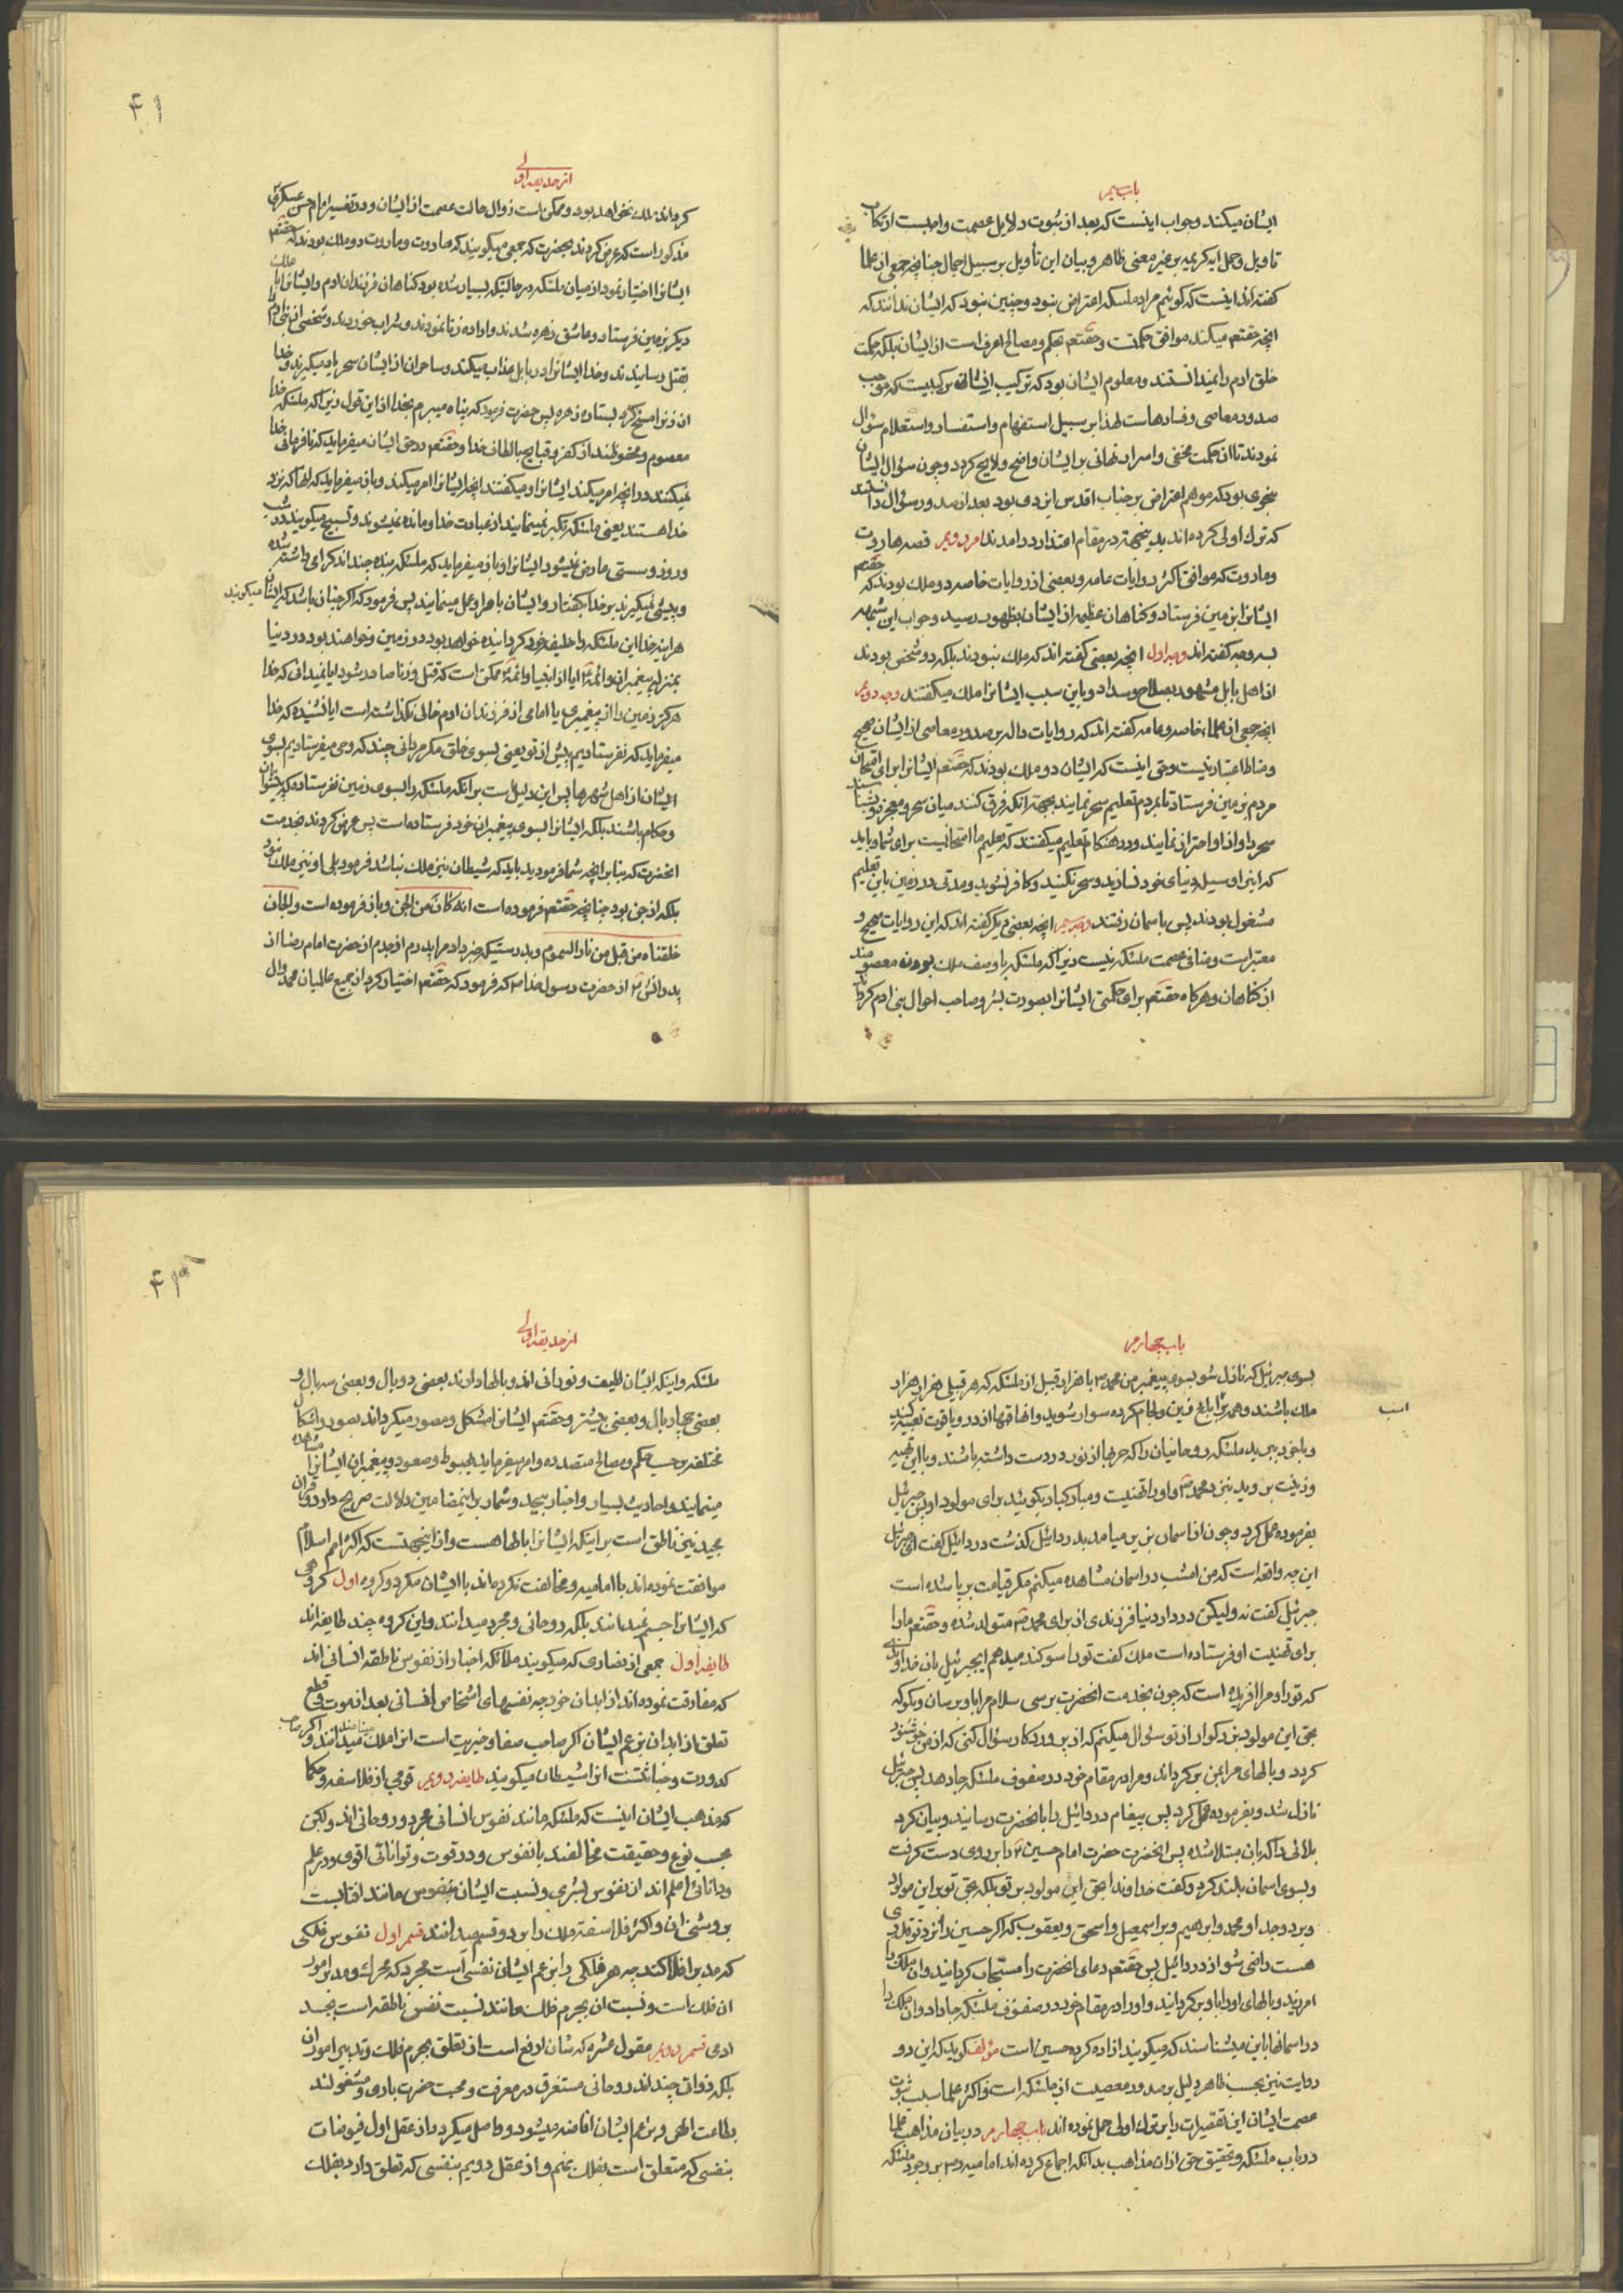 باب سیم
ایشان میکند و جواب اینست که بعد از ثبوت دلایل عصمت واجبست ارتکاب
تاویل و حمل ایه کریمه بر غیر معنی ظاهر و بیان این تأویل بر سبیل اجمال چنانچه جمعی از علما
کفته‌اند اینست که کوئیم مراد ملئکه اعتراض نبود و چنین نبود که ایشان ندانند که
انچه حقتعم میکند موافق حکمتست و حقتعم بحکم و مصالح اعرف است از ایشان بلکه حکمت
خلق ادم را نمیدانستند و معلوم ایشان بود که ترکیب ایشان ترکیبیست که موجب
صدور معاصی و فسادهاست لهذا بر سبیل استفهام و استفسار و استعلام سؤال
نمودند تا ان حکمت مخفی و اسرار نهانی بر ایشان واضح و لایح کردد و چون سؤال ایشان
بنحوی بود که موهم اعتراض بر جناب اقدس ایزدی بود بعد از صدور سؤال دانستند
که ترک اولی کرده‌اند بدینجهة در مقام اعتذار درامدند امر دویم قصه هاروت
و ماروت که موافق اکثر روایات عامه و بعضی از روایات خاصه دو ملک بودند که حقتعم
ایشانرا بزمین فرستاد و کناهان عظیمه از ایشان بظهور رسید و جواب این شبهه
بسه وجه کفته‌اند وجه اول انچه بعضی کفته‌اند که ملک نبودند بلکه دو شخص بودند
از اهل بابل مشهور بصلاح و سداد و باین سبب ایشانرا ملک میکفتند وجه دویم
انچه جمعی از علماء خاصه و عامه کفته‌اند که روایات داله بر صدور معاصی از ایشان صحیح
و مناط اعتبار نیست و حق اینست که ایشان دو ملک بودند که حقتعم ایشانرا برای امتحان
مردم بزمین فرستاد تا بمردم تعلیم سحر نمایند بجهة انکه فرق کنند میان سحر و معجزه و بشناسند
سحر را و از او احتراز نمایند و در هنکام تعلیم میکفتند که تعلیم ما امتحانیست برای شما و باید
که اینرا وسیله دنیای خود نسازید و سحر نکنید و کافر نشوید و مدتی در زمین باین تعلیم
مشغول بودند پس باسمان رفتند وجه سیم انچه بعضی دیکر کفته‌اند که این روایات صحیح و
معتبر است و منافی عصمت ملئکه نیست زیرا که ملئکه با وصف ملک بودن معصومند
از کناهان و هرکاه حقتعم برای حکمتی ایشانرا بصورت بشر و صاحب احوال بنی ادم کرداند
۴۱
از حدیقه اولی
کرداند ملک نخواهد بود و ممکن است زوال حالت عصمت از ایشان و در تفسیر امام حسن عسکری
مذکور است که عرض کردند بحضرت که جمعی میکویند که هاروت و ماروت دو ملک بودند که حقتعم
ایشانرا اختیار نمود از میان ملئکه در حالتیکه بسیار شده بود کناهان فرزندان ادم و ایشانرا با ملک
دیکر بزمین فرستاد و عاشق زهره شدند و اراده زنا نمودند و شراب خوردند و شخصی از بنی ادم را
بقتل رسانیدند و خدا ایشانرا در بابل عذاب میکند و ساحران از ایشان سحر یاد میکیرند و خدا
ان زنرا مسخ کرد بستاره زهره پس حضرت فرمود که پناه میبرم بخدا از این قول زیرا که ملئکه خدا
معصوم و محفوظند از کفر و قبایح بالطاف خدا و حقتعم در حق ایشان میفرماید که نافرمانی خدا
نمیکنند در انچه امر میکند ایشانرا و میکنند انچه ایشانرا امر میکند و باز میفرماید که انها که نزد
خدا هستند یعنی ملئکه تکبر نمینمایند از عبادت خدا و مانده نمیشوند و تسبیح میکویند در شب
و روز و سستی عارض نمیشود ایشانرا و باز میفرماید که ملئکه بنده چند اند کرامی داشته شده
و پیشی نمیکیرند بر خدا بکفتار و ایشان بامر او عمل مینمایند پس فرمود که اکر چنان باشد که ایشان میکویند
هراینه خدا این ملئکه را خلیفه خود کردانیده خواهد بود در زمین و خواهند بود در دنیا
بمنزله پیغمبران و ائمه ایا از انبیا و ائمه ممکن است که قتل و زنا صادر شود ایا نمیدانی که خدا
هرکز زمین را از پیغمبری یا امامی از فرزندان ادم خالی نکذاشته است ایا نشنیده که خدا
میفرماید که نفرستادیم پیش از تو یعنی بسوی خلق مکر مردانی چند که وحی میفرستادیم بسوی
ایشان از اهل شهرها پس این دلیل است بر انکه ملئکه را بسوی زمین نفرستاده که پیشوایان
و حکام باشند بلکه ایشانرا بسوی پیغمبران خود فرستاده است پس عرض کردند بخدمت
انحضرت که بنابر انچه شما فرمودید باید که شیطان نیز ملک نباشد فرمود بلی او نیز ملک نبود
بلکه از جن بود چنانچه حقتعم فرموده است انه کان من الجن و باز فرموده است والجان
خلقناه من قبل من نار السموم و بدرستیکه خبر داد مرا پدرم از جدم از حضرت امام رضا از
پدرانش از حضرت رسول خدا که فرمود که حقتعم اختیار کرد از جمیع عالمیان محمد و ال
باب چهارم
بسوی جبرئیل که نازل شو بسوی پیغمبر من محمد با هزار قبیل از ملئکه که هر قبیلی هزار هزار
ملک باشند و همه بر اسبان ابلق زین و لجام کرده سوار شوید و انها قبها از در و یاقوت تعبیه کنید
اسب
و با خود ببرید ملئکه روحانیان را که حربها از نور در دست داشته باشند و با این تهیه
و زینت بروید بنزد محمد و او را تهنیت و مبارکباد بکوئید برای مولود او پس جبرئیل
بفرموده عمل کرد و چون از اسمان بزیر میامد بدردائیل کذشت دردائیل کفت ای جبرئیل
این چه واقعه است که من امشب در اسمان مشاهده میکنم مکر قیامت برپا شده است
جبرئیل کفت نه ولیکن در دار دنیا فرزندی از برای محمد متولد شده و حقتعم مارا
برای تهنیت او فرستاده است ملک کفت ترا سوکند میدهم ایجبرئیل بان خداوندی
که تو را و مرا افریده است که چون بخدمت انحضرت برسی سلام مرا باو برسان و بکو که
بحق این مولود بزرکوار از تو سؤال میکنم که از پروردکار سؤال کنی که از من خوشنود
کردد و بالهای مرا بمن برکرداند و مرا در مقام خود در صفوف ملئکه جا دهد پس جبرئیل
نازل شد و بفرموده عمل کرد پس پیغام دردائیل را بانحضرت رسانید و بیان کرد
بلائی را که بان مبتلا شده پس انحضرت حضرت امام حسین را بر روی دست کرفت
و بسوی اسمان بلند کرد و کفت خداوندا بحق این مولود بر تو بلکه بحق تو بر این مولود
و بر جد او محمد و ابرهیم و بر اسمعیل و اسحق و یعقوب که اکر حسین را نزد تو قدری
هست راضی شو از دردائیل پس حقتعم دعای انحضرت را مستجاب کردانید و ان ملک را
امرزید و بالهای او را باو برکردانید و او را در مقام خود در صفوف ملئکه جا داد و ان ملک را
در اسمانها باین میشناسند که میکویند ازاد کرده حسین است مؤلف کوید که این دو
روایت نیز بحسب ظاهر دلیل بر صدور معصیت از ملئکه است و اکثر علما بسبب ثبوت
عصمت ایشان این تقصیرات را بر ترک اولی حمل نموده‌اند باب چهارم در بیان مذاهب علما
در باب ملئکه و تحقیق حق از ان مذاهب بدانکه اجماع کرده‌اند امامیه بر وجود ملئکه
از حدیقه اولی
ملئکه و اینکه ایشان لطیف و نورانی اند و بالها دارند بعضی دو بال و بعضی سه بال و
بعضی چهار بال و بعضی بیشتر و حقتعم ایشانرا متشکل و مصور میکرداند بصور و اشکال
مختلفه بر حسب حکم و مصالح متعدده و امر میفرماید بهبوط و صعود و پیغمبران ایشانرا مشاهده
مینمایند و احادیث بسیار و اخبار بیحد و شمار بر اینمضامین دلالت صریح دارد و قران
مجید نیز ناطق است بر اینکه ایشانرا بالها هست و از اینجهتست که اکثر امم اسلام
موافقت نموده‌اند با امامیه و مخالفت نکرده‌اند با ایشان مکر دو کروه اول کروهی
که ایشانرا جسم نمیدانند بلکه روحانی و مجرد میدانند و این کروه چند طایفه‌اند
طایفه اول جمعی از نصاری که میکویند ملائکه اخیار از نفوس ناطقه انسانی اند
که مفارقت نموده‌اند از ابدان خود چه نفسهای اشخاص انسانی بعد از موت و قطع
تعلق از ابدان بزعم ایشان اکر صاحب صفا و خیریت است انرا ملک مینامند و اکر صاحب
کدورت و خباثتست انرا شیطان میکویند طایفه دویم قومی از فلاسفه و حکما
که مذهب ایشان اینست که ملئکه مانند نفوس انسانی مجرد و روحانی اند ولیکن
بحسب نوع و حقیقت مخالفند با نفوس و در قوت و توانائی اقوی و در علم
و دانائی اعلم اند از نفوس بشری و نسبت ایشان بنفوس مانند افتابست
بروشنی ان و اکثر فلاسفه ملک را بر دو قسم میدانند قسم اول نفوس فلکی
که مدبر افلاکند چه هر فلکی را بزعم ایشان نفسی است مجرد که محرک و مدبر امور
ان فلک است و نسبت ان بجرم فلک مانند نسبت نفس ناطقه است بجسد
ادمی قسم دویم عقول عشره که شان ارفع است از تعلق بجرم فلک و تدبیر امور ان
بلکه ذواتی چند اند روحانی مستغرق در معرفت و محبت حضرت باری و مشغولند
بطاعت الهی و بزعم ایشان افاضه میشود و حاصل میکردد از عقل اول فیوضات
بنفسی که متعلق است بفلک نهم و از عقل دویم بنفسی که تعلق دارد بفلک